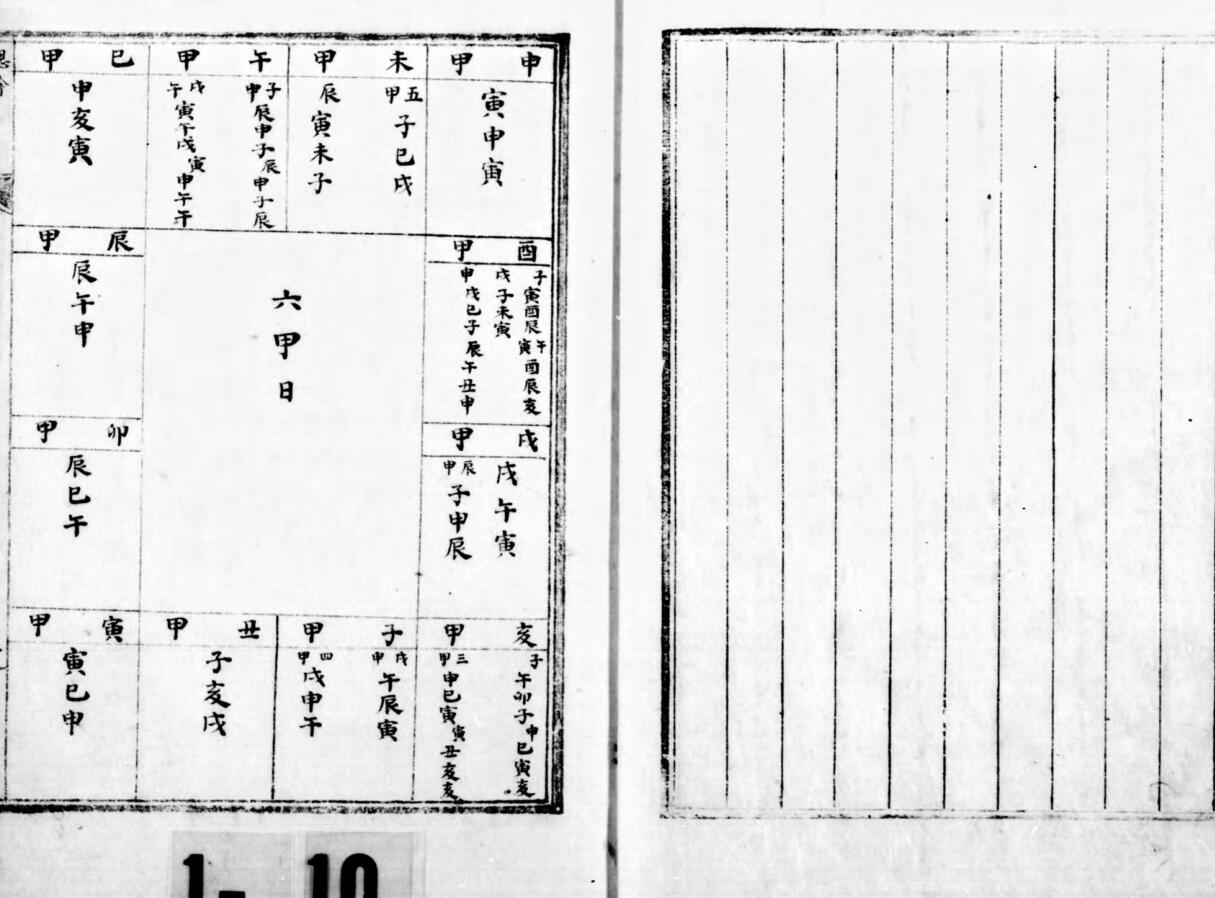 申甲
寅申寅
未甲
五甲
子巳戌
辰
寅未子
午甲
子申
辰申子辰申子辰
戌午
寅午戌寅申午午
巳甲
申亥寅
酉甲
子寅酉辰午寅酉辰亥
戌子未寅
申戌巳子辰午丑申
戌甲
戌午寅
辰甲
子申辰
亥甲
子午卯子申巳寅亥
三甲
申巳寅寅丑亥亥
子甲
戌申
午辰寅
四甲
戌申午
丑甲
子亥戌
寅甲
寅巳申
卯甲
辰巳午
辰甲
辰午申
六甲日
1-10